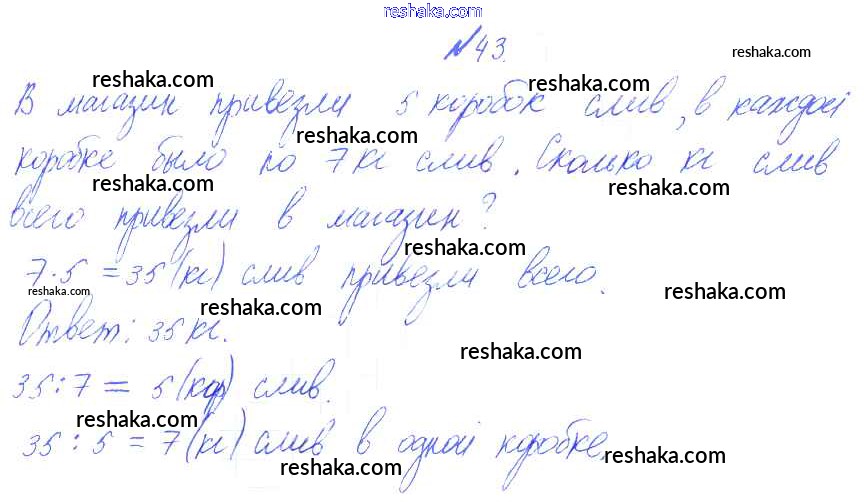 reshaka.com
№43.
reshaka.com
reshaka.com reshaka.com
В магазин привезли 5 коробок слив, в каждой
reshaka.com
коробке было по 7 кг слив. Сколько кг слив
reshaka.com reshaka.com
всего привезли в магазин?
reshaka.com
7·5 = 35 (кг) слив привезли всего.
reshaka.com reshaka.com
reshaka.com
Ответ: 35 кг.
reshaka.com
35:7 = 5 (кор) слив.
reshaka.com
35:5 = 7 (кг) слив в одной коробке.
reshaka.com reshaka.com